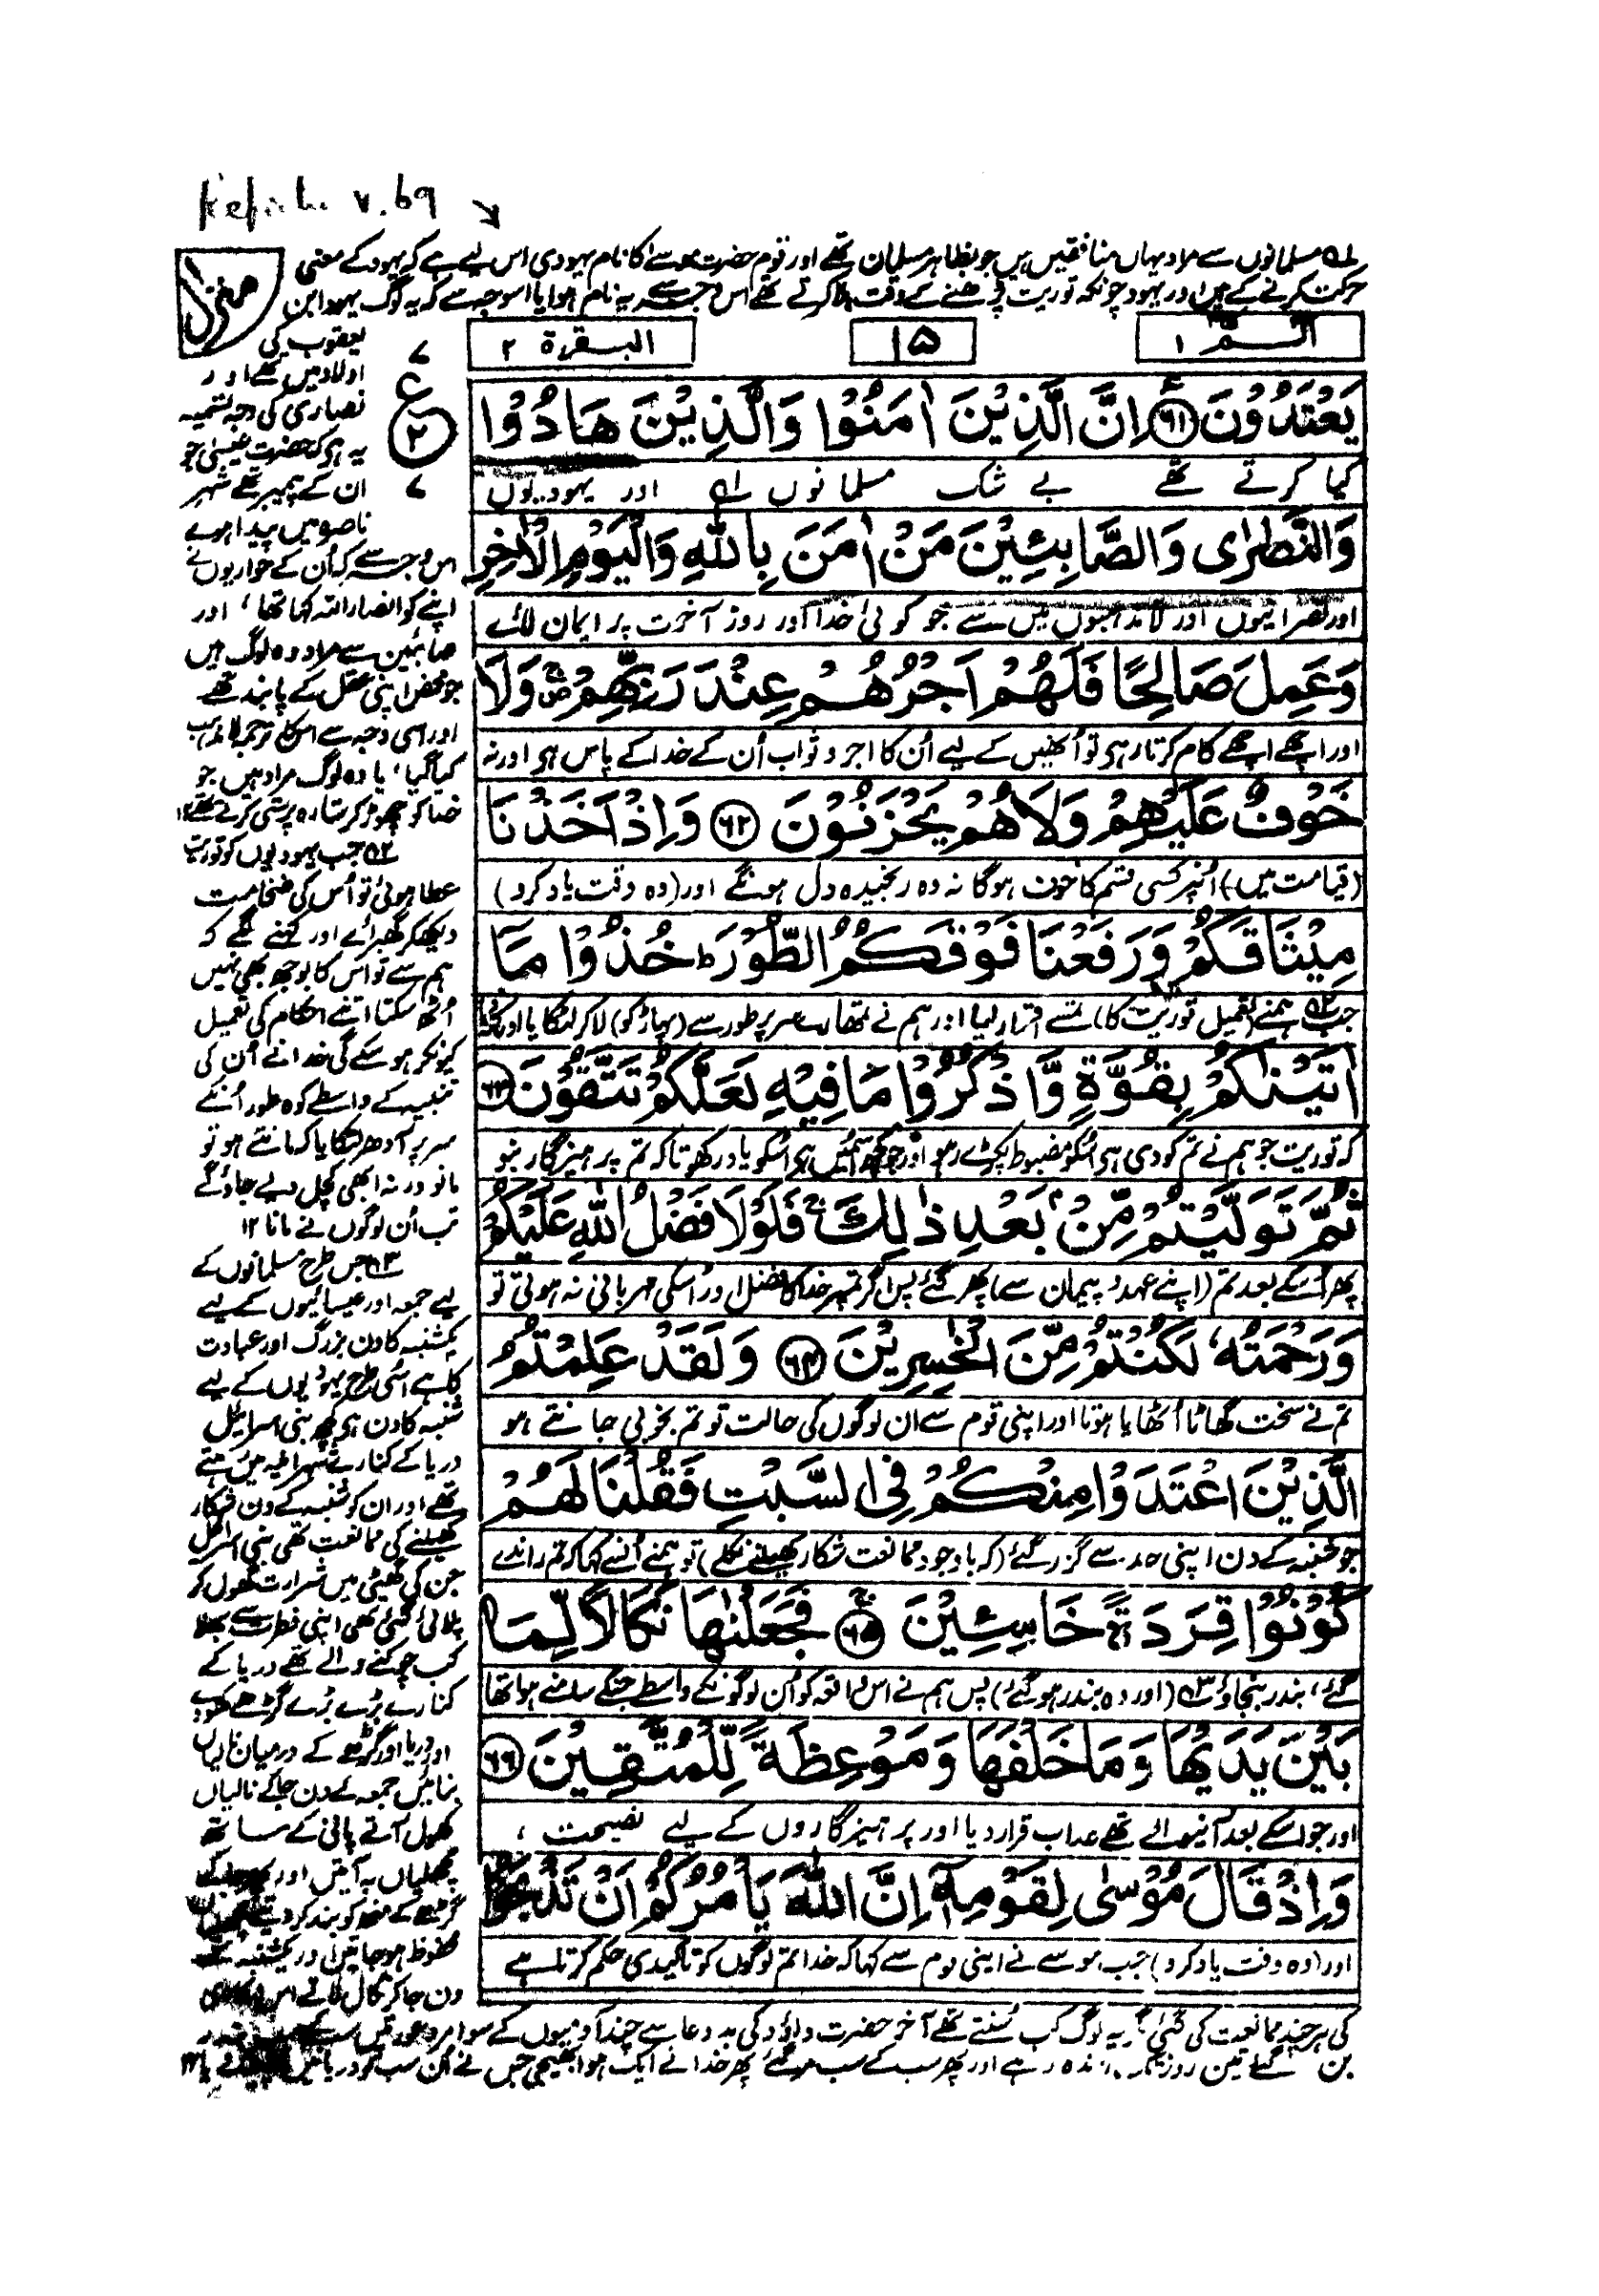 v. 69
۱ مسلمانوں سے مراد یہاں منافقین ہیں جو بظاہر مسلمان تھے اور قوم حضرت موسےٰ کا نام یہودی اس لیے ہے کہ یہود کے معنی
حرکت کرنے کے ہیں اور یہود چونکہ توریت پڑھنے کے وقت ہلا کرتے تھے اس وجہ سے یہ نام ہوا یا اسوجہ سے کہ یہ لوگ یہودا بن
منزل
الٓـمّٓ ۱
۱۵
البقرة ۲
یَعْتَدُوْنَ ﴿۶۱﴾ اِنَّ الَّذِیْنَ اٰمَنُوْا وَالَّذِیْنَ هَادُوْا
کیا کرتے تھے بے شک مسلمانوں اور یہودیوں
وَالنَّصٰرٰی وَالصَّابِئِیْنَ مَنْ اٰمَنَ بِاللّٰهِ وَالْیَوْمِ الْاٰخِرِ
اور نصرانیوں اور لامذہبوں میں سے جو کوئی خدا اور روز آخرت پر ایمان لائے
وَعَمِلَ صَالِحًا فَلَهُمْ اَجْرُهُمْ عِنْدَ رَبِّهِمْ وَلَا
اور اچھے اچھے کام کرتا رہے تو اُنھیں کے لیے اُن کا اجر و ثواب اُن کے خدا کے پاس ہے اور نہ
خَوْفٌ عَلَیْهِمْ وَلَا هُمْ یَحْزَنُوْنَ ﴿۶۲﴾ وَاِذْ اَخَذْنَا
(قیامت میں) اُنپر کسی قسم کا خوف ہوگا نہ وہ رنجیدہ دل ہونگے اور (وہ وقت یاد کرو)
مِیْثَاقَکُمْ وَرَفَعْنَا فَوْقَکُمُ الطُّوْرَ ط خُذُوْا مَآ
جب ۲ ہمنے (تعمیل توریت کا) تمسے اقرار لیا اور ہم نے تمھارے سر پر طور سے (پہاڑ کو) لا کر لٹکایا اور
اٰتَیْنٰکُمْ بِقُوَّةٍ وَّاذْکُرُوْا مَا فِیْهِ لَعَلَّکُمْ تَتَّقُوْنَ ﴿۶۳﴾
کہ توریت جو ہم نے تم کو دی ہے اسکو مضبوط پکڑے رہو اور جو کچھ اسمیں ہے اسکو یاد رکھو تاکہ تم پرہیزگار بنو
ثُمَّ تَوَلَّیْتُمْ مِّنْۢ بَعْدِ ذٰلِکَ ج فَلَوْلَا فَضْلُ اللّٰهِ عَلَیْکُمْ
پھر اُسکے بعد تم (اپنے عہد و پیمان سے) پھر گئے پس اگر تمپر خدا کا فضل اور اُسکی مہربانی نہ ہوتی تو
وَرَحْمَتُهٗ لَکُنْتُمْ مِّنَ الْخٰسِرِیْنَ ﴿۶۴﴾ وَلَقَدْ عَلِمْتُمُ
تم نے سخت گھاٹا اُٹھایا ہوتا اور اپنی قوم سے ان لوگوں کی حالت تو تم بخوبی جانتے ہو
الَّذِیْنَ اعْتَدَوْا مِنْکُمْ فِی السَّبْتِ فَقُلْنَا لَهُمْ
جو شنبہ کے دن اپنی حد سے گزر گئے (کہ باوجود ممانعت شکار کھیلنے نکلے) تو ہمنے اُنسے کہا کہ تم راندے
کُوْنُوْا قِرَدَةً خَاسِئِیْنَ ﴿۶۵﴾ فَجَعَلْنٰهَا نَکَالًا لِّمَا
گئے، بندر بنجاؤ ۳ (اور وہ بندر ہو گئے) پس ہم نے اس واقعہ کو اُن لوگونکے واسطے جنکے سامنے ہوا تھا
بَیْنَ یَدَیْهَا وَمَا خَلْفَهَا وَمَوْعِظَةً لِّلْمُتَّقِیْنَ ﴿۶۶﴾
اور جو اسکے بعد آنیوالے تھے عذاب قرار دیا اور پرہیزگاروں کے لیے نصیحت ،
وَاِذْ قَالَ مُوْسٰی لِقَوْمِهٖٓ اِنَّ اللّٰهَ یَاْمُرُکُمْ اَنْ تَذْبَحُوْا
اور (وہ وقت یاد کرو) جب موسےٰ نے اپنی قوم سے کہا کہ خدا تم لوگوں کو تاکیدی حکم کرتا ہے
۷
ع
۲
۷
یعقوب کی
اولاد میں تھے اور
نصاریٰ کی وجہ تسمیہ
یہ ہے کہ حضرت عیسیٰ جو
ان کے پیمبر تھے شہر
ناصرہ میں پیدا ہوے
اس وجہ سے کہ اُن کے حواریوں نے
اپنے کو انصار اللہ کہا تھا، اور
صابئین سے مراد وہ لوگ ہیں
جو محض اپنی عقل کے پابند تھے
اور اسی وجہ سے اس کا ترجمہ لامذہب
کیا گیا، یا وہ لوگ مراد ہیں جو
خدا کو چھوڑ کر ستارہ پرستی کرتے تھے ۱۲
۲ جب یہودیوں کو توریت
عطا ہوئی تو اُس کی ضخامت
دیکھکر گھبرائے اور کہنے لگے کہ
ہم سے تو اس کا بوجھ بھی نہیں
اُٹھ سکتا اتنے احکام کی تعمیل
کیونکر ہو سکے گی خدا نے اُن کی
تنبیہ کے واسطے کوہ طور اُنکے
سر پر اُدھر لٹکایا کہ مانتے ہو تو
مانو ورنہ ابھی کچل دیے جاؤگے
تب اُن لوگوں نے مانا ۱۲
۳ جس طرح مسلمانوں کے
لیے جمعہ اور عیسائیوں کے لیے
یکشنبہ کا دن بزرگ اور عبادت
کا ہے اسی طرح یہودیوں کے لیے
شنبہ کا دن ہے کچھ بنی اسرائیل
دریا کے کنارے شہر ایلہ میں رہتے
تھے اور ان کو شنبہ کے دن شکار
کھیلنے کی ممانعت تھی بنی اسرائیل
جن کی گھٹی میں شرارت گھول کر
پلائی گئی تھی اپنی فطرت سے بھلا
کب چوکنے والے تھے دریا کے
کنارے بڑے بڑے گڑھے کھودے
اور دریا اور گڑھے کے درمیان نالیاں
بنائیں جمعہ کے دن جا کے نالیاں
کھول آتے پانی کے ساتھ
مچھلیاں بہ آتیں اور
گڑھے کے منھ کو بند کر دیتے
محفوظ ہو جاتیں اور یکشنبہ کے
دن جا کر نکال لاتے اس
کی ہر چند ممانعت کی گئی مگر یہ لوگ کب سُنتے تھے آخر حضرت داؤد کی بد دعا سے چند آدمیوں کے سوا مرد عورتیں سب
بن گئے تین روز تک زندہ رہے اور پھر سب کے سب مر گئے پھر خدا نے ایک ہوا بھیجی جس نے اُن سب کو دریا میں